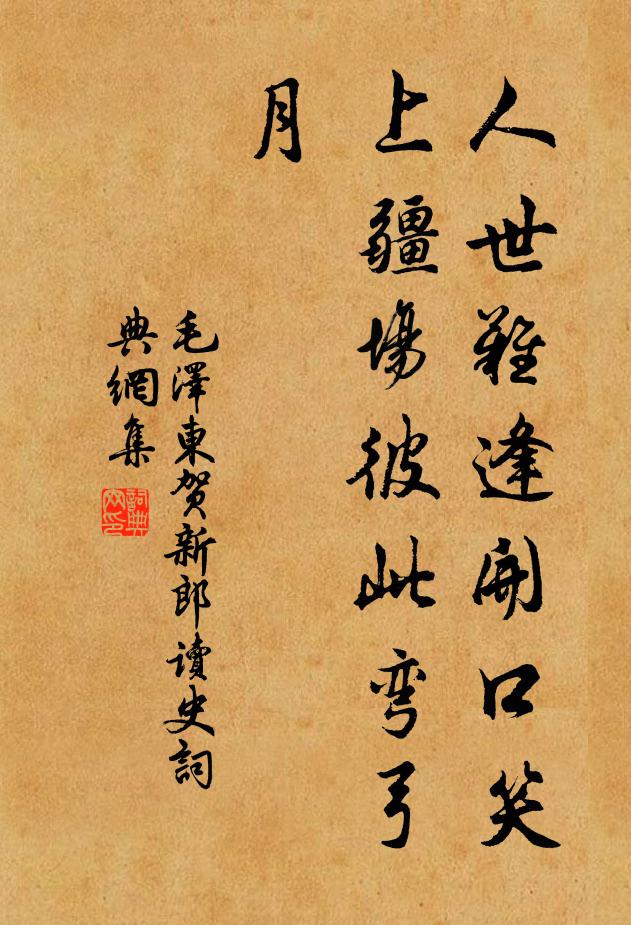 人世難逢開口笑
上疆場彼此弯弓
月
毛澤東賀新郎讀史詞
典網集
詞典
网印